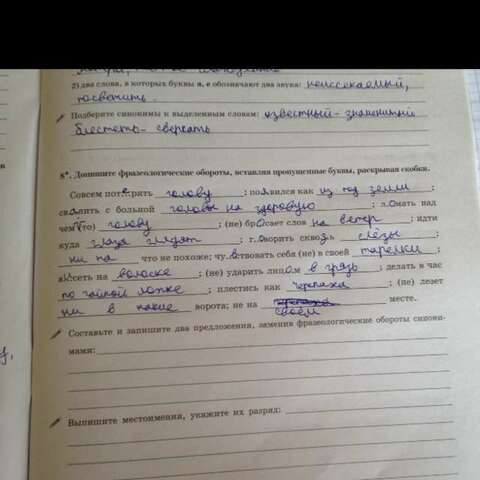 2) два слова, в которых буквы я, е обозначают два звука: неиссекаемый,
посветить.
Подберите синонимы к выделенным словам: известный - знаменитый
блестеть - сверкать
8*. Допишите фразеологические обороты, вставляя пропущенные буквы, раскрывая скобки.
Совсем потерять голову; появился как из под земли;
свалить с больной головы на здоровую; ломать над
чем(то) голову; (не) бросает слов на ветер; идти
куда глаза глядят; говорить сквозь слёзы;
ни на что не похоже; чу..ствовать себя (не) в своей тарелки;
висеть на волоске; (не) ударить лицом в грязь; делать в час
по чайной ложке; плестись как черепаха; (не) лезет
ни в какие ворота; не на своём месте.
Составьте и запишите два предложения, заменив фразеологические обороты синони-
мами:
Выпишите местоимения, укажите их разряд: